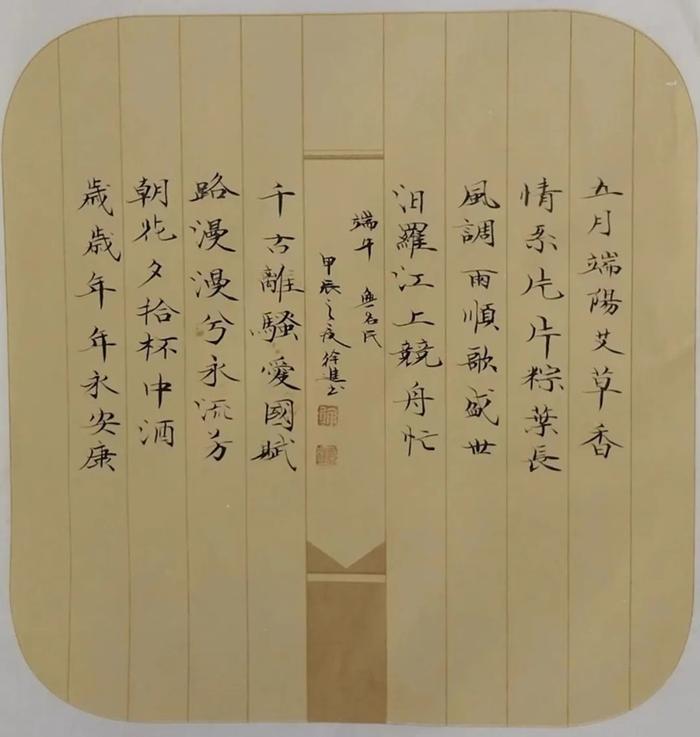 五月端陽艾草香
情系片片粽葉長
風調雨順歌盛世
汨羅江上競舟忙
端午 無名氏
甲辰之夏徐進書
千古離騷愛國賦
路漫漫兮永流芳
朝花夕拾杯中酒
歲歲年年永安康